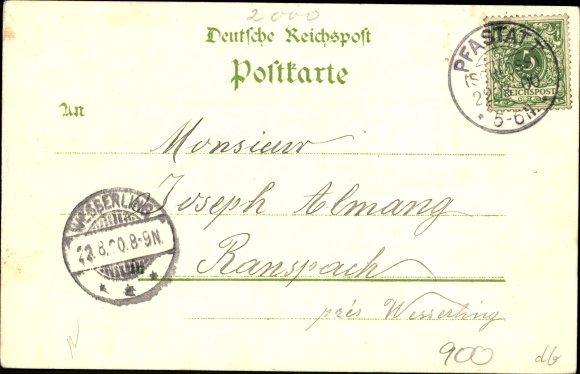 2000
Deutsche Reichspost
Postkarte
PFASTATT
5
REICHSPOST
* 5-6N. *
An
Monsieur
Joseph Almang
WESSERLING
22.8.00.8-9N.
Ranspach
près Wesserling
900
db